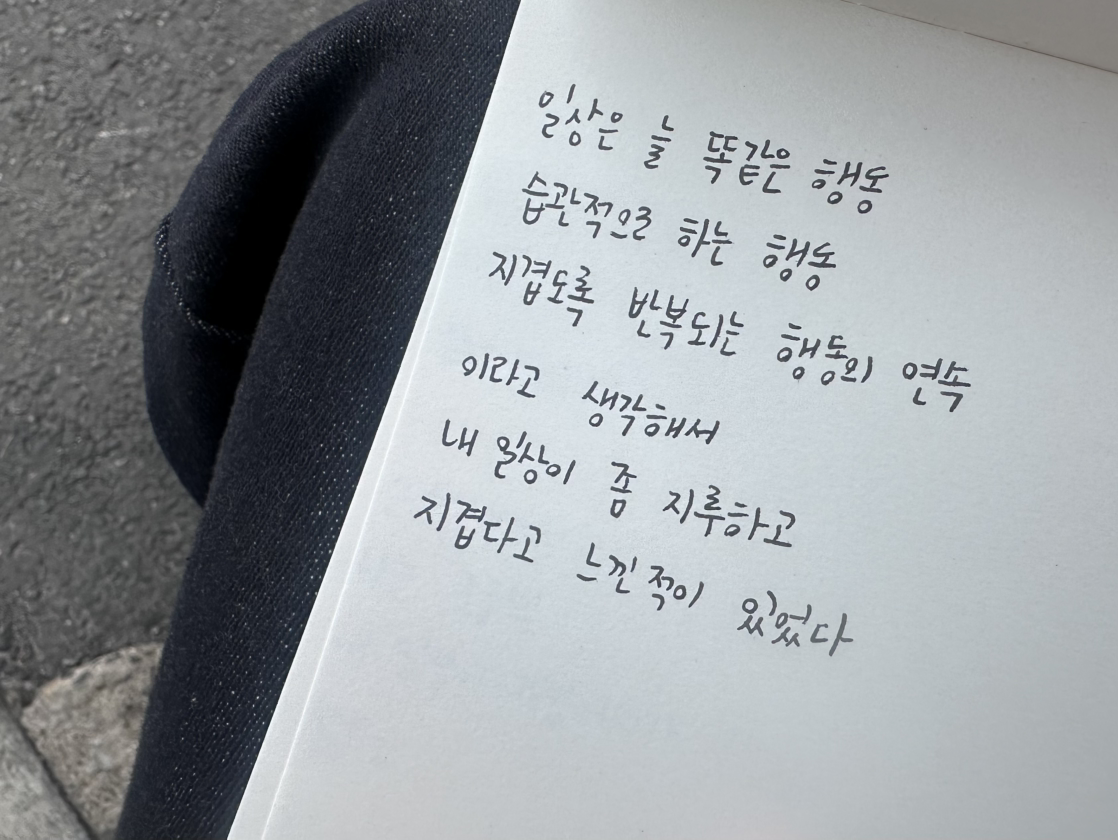 일상은 늘 똑같은 행동
습관적으로 하는 행동
지겹도록 반복되는 행동의 연속
이라고 생각해서
내 일상이 좀 지루하고
지겹다고 느낀적이 있었다